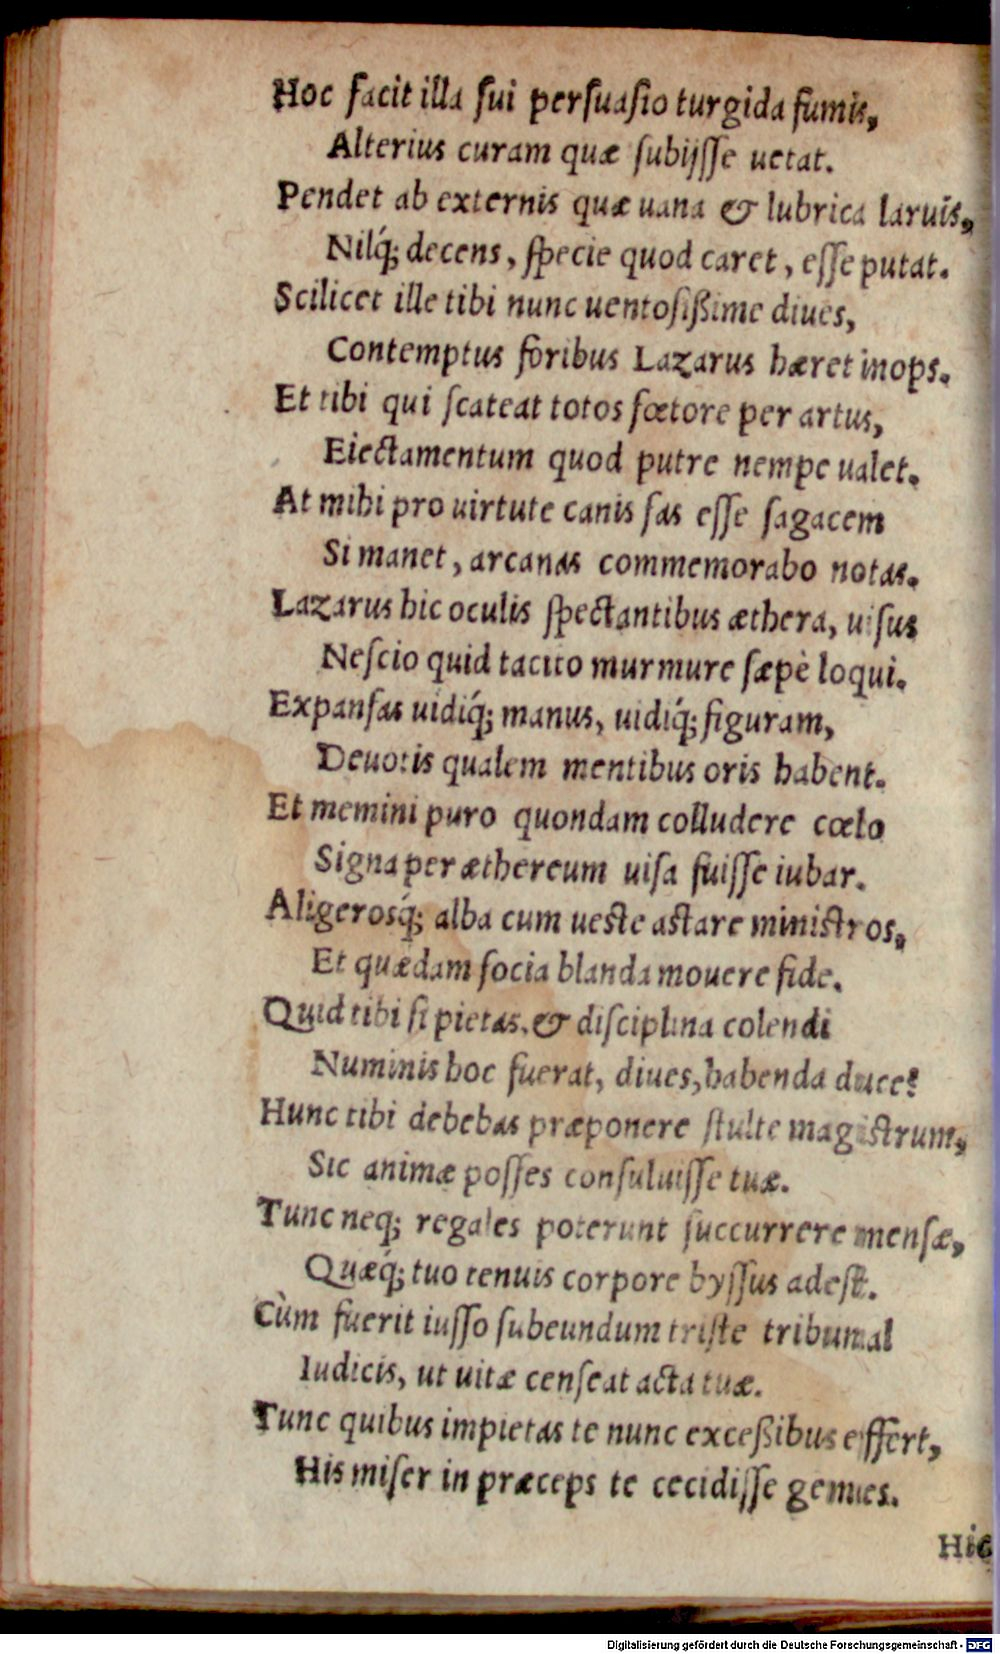 Hoc facit illa sui persuasio turgida fumis,
Alterius curam quæ subijsse uetat.
Pendet ab externis quæ uana & lubrica laruis,
Nilq́; decens, specie quod caret, esse putat.
Scilicet ille tibi nunc uentosißime diues,
Contemptus foribus Lazarus hæret inops.
Et tibi qui scateat totos fœtore per artus,
Eiectamentum quod putre nempe ualet.
At mihi pro uirtute canis fas esse sagacem
Si manet, arcanas commemorabo notas.
Lazarus hic oculis spectantibus æthera, uisus
Nescio quid tacito murmure sæpè loqui.
Expansas uidiq́; manus, uidiq́; figuram,
Deuotis qualem mentibus oris habent.
Et memini puro quondam colludere cœlo
Signa per æthereum uisa fuisse iubar.
Aligerosq́; alba cum ueste astare ministros,
Et quædam socia blanda mouere fide.
Quid tibi si pietas, & disciplina colendi
Numinis hoc fuerat, diues, habenda duce?
Hunc tibi debebas præponere stulte magistrum,
Sic animæ posses consuluisse tuæ.
Tunc neq; regales poterunt succurrere mensæ,
Quæq́; tuo tenuis corpore byssus adest.
Cùm fuerit iusso subeundum triste tribunal
Iudicis, ut uitæ censeat acta tuæ.
Tunc quibus impietas te nunc exceßibus effert,
His miser in præceps te cecidisse gemes.
Hic
Digitalisierung gefördert durch die Deutsche Forschungsgemeinschaft - DFG